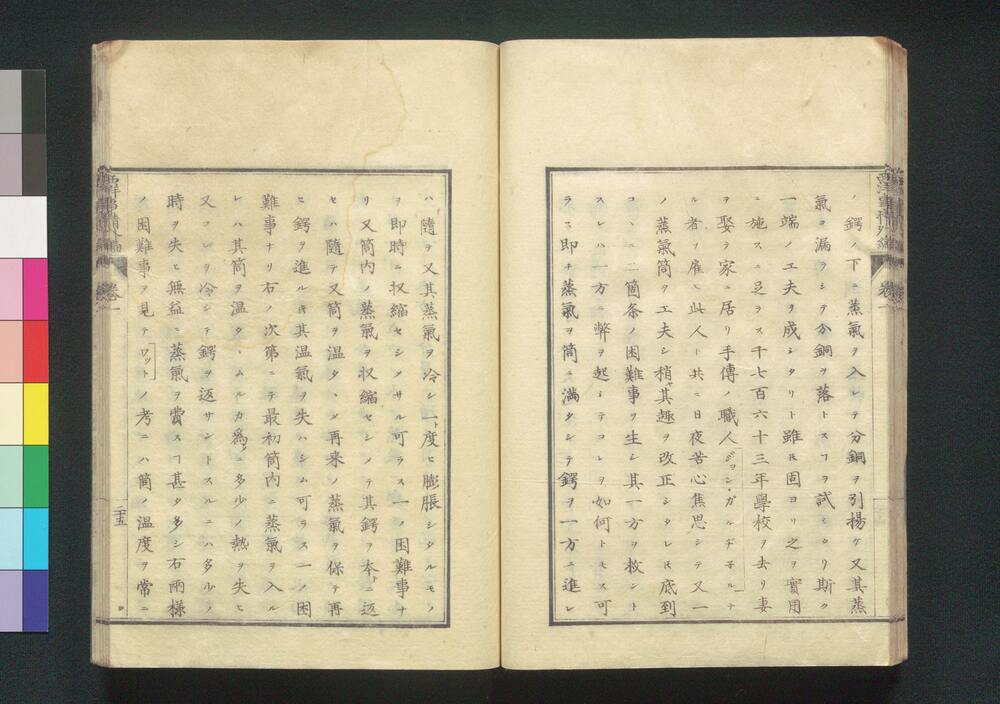 ノ鍔ノ下ニ蒸氣ヲ入レテ分銅ヲ引揚ケ又其蒸
氣ヲ漏ラシテ分銅ヲ落トスヿヲ試ミタリ斯ク
一端ノ工夫ヲ成シタリト雖𪜈固ヨリ之ヲ實用
ニ施スニ足ラス千七百六十三年學校ヲ去リ妻
ヲ娶ラ家ニ居リ手傳ノ職人ジョン・ガルヂ子ルナ
ル者ヲ雇ヒ此人ト共ニ日夜苦心焦思シテ又一
ノ蒸氣筒ヲ工夫シ稍其趣ヲ改正シタレ𪜈底到
コヽニ二箇条ノ困難事ヲ生シ其一方ヲ救ント
スレハ一方ニ弊ヲ起シテコレヲ如何トモス可
ラス即チ蒸氣ヲ筒ニ滿タシテ鍔ヲ一方ニ進レ
ハ隨テ又其蒸氣ヲ冷シ一度ヒ膨脹シタルモノ
ヲ即時ニ収縮セシメサル可ラス一ノ困難事ナ
リ又筒内ノ蒸氣ヲ収縮セシメテ其鍔ヲ本ニ返
セハ隨テ又筒ヲ温タヽメ再来ノ蒸氣ヲ保テ再
ヒ鍔ヲ進ルキ其温氣ヲ失ハシム可ラス一ノ困
難事ナリ右ノ次第ニテ最初筒内ニ蒸氣ヲ入ル
レハ其筒ヲ温タヽムルカ爲メニ多少ノ熱ヲ失ヒ
又コレヲ冷シテ鍔ヲ返サントスルニハ多少ノ
時ヲ失ヒ無益ニ蒸氣ヲ費スヿ甚タ多シ右兩様
ノ困難事ヲ見テワットノ考ニハ筒ノ温度ヲ常ニ
二十五